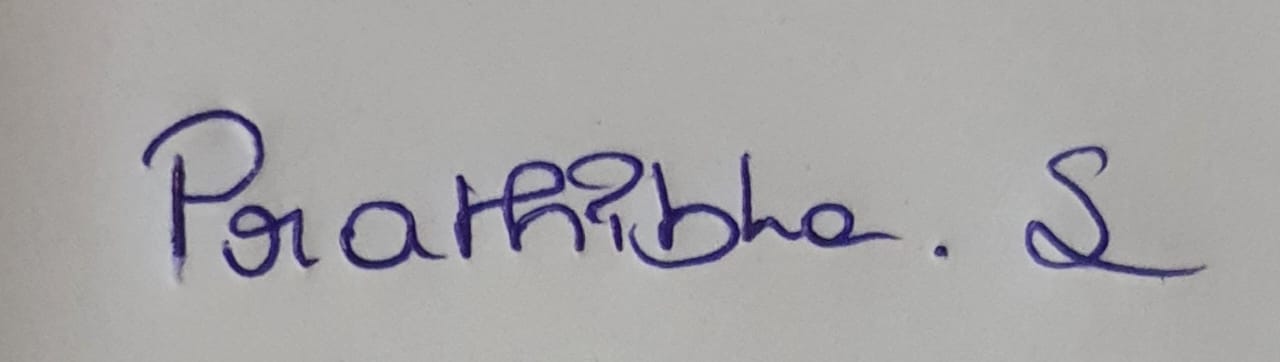 Prathibha. S